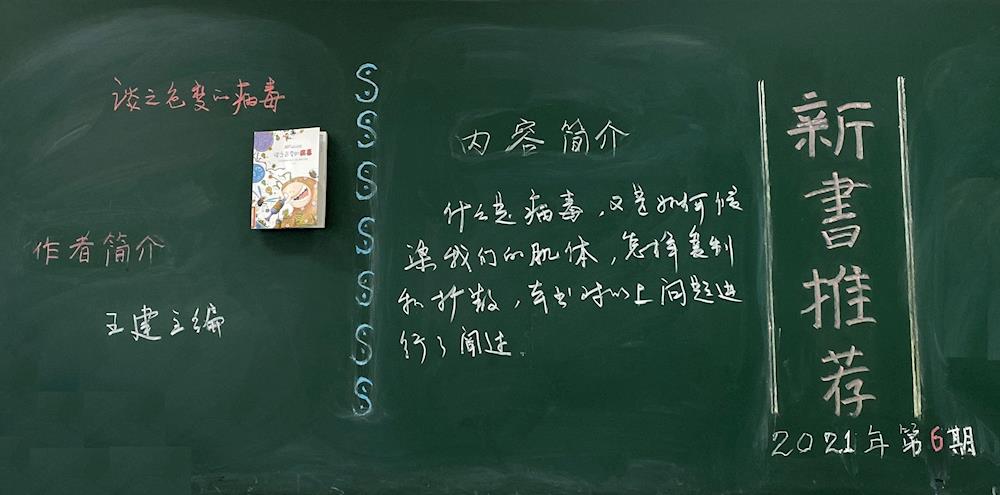 新書推荐
2021年第6期
谈之色变的病毒
谈之色变的病毒
作者简介
王建主编
内容简介
什么是病毒，又是如何传
染我们的肌体，怎样复制
和扩散，本书对以上问题进
行了阐述.